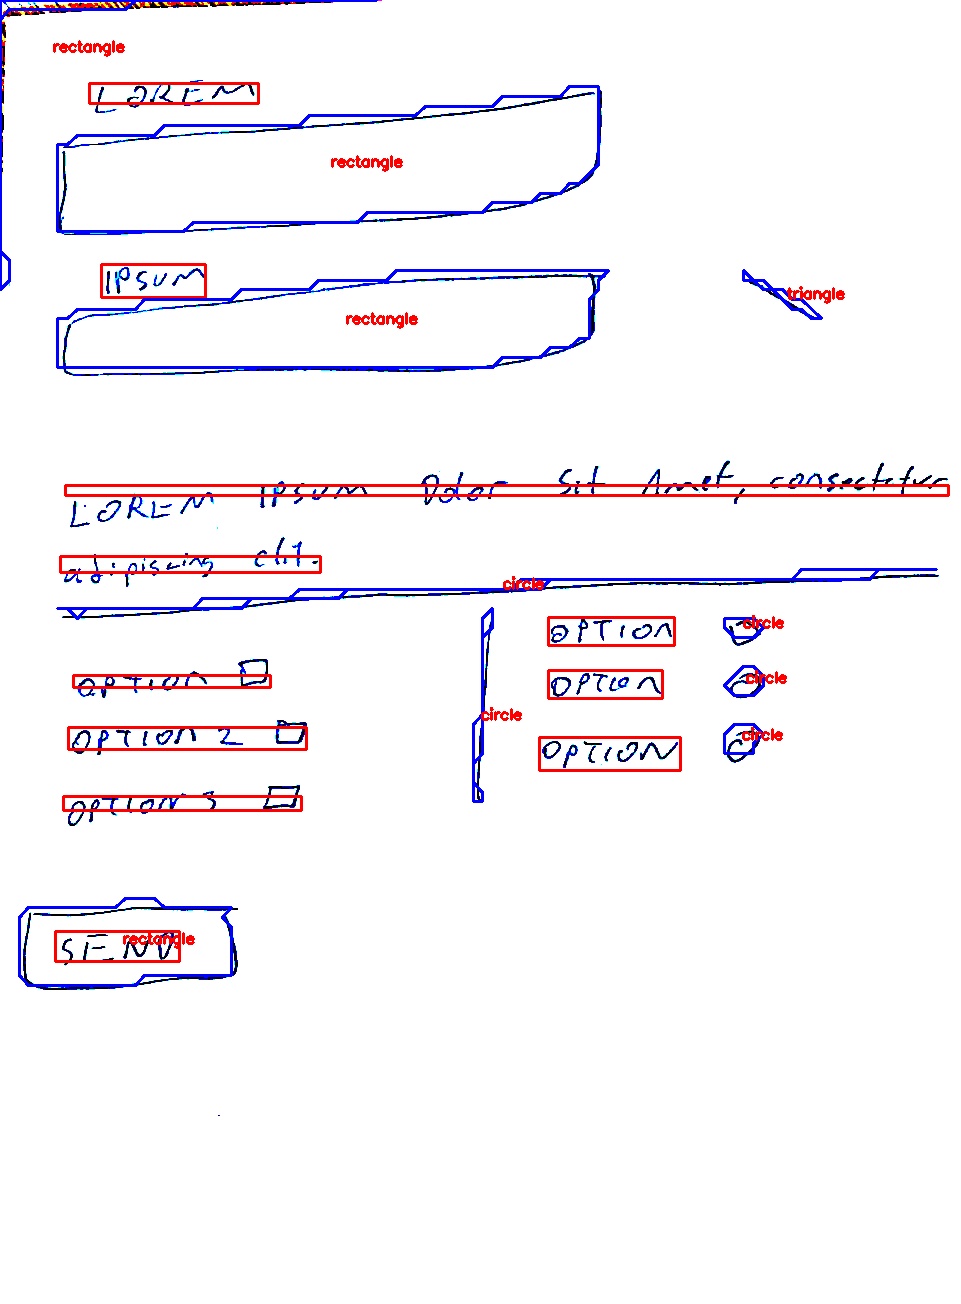 rectangle
LOREM
rectangle
IPSUM
triangle
rectangle
LOREM IPSUM Dolor Sit Amet, consectetur
adipiscing elit.
circle
OPTION circle
OPTION
OPTION circle
circle
OPTION 2
OPTION circle
OPTION 3
SEND rectangle